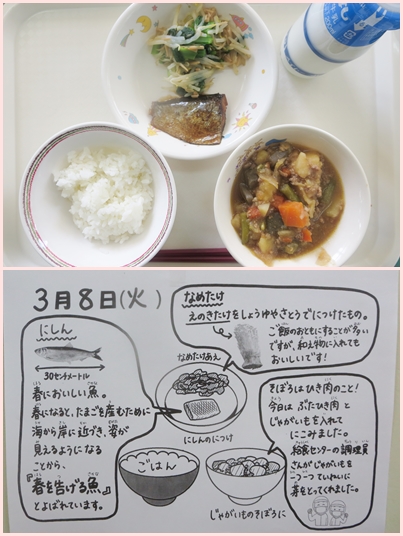 3月8日(火)
なめたけ
えのきたけをしょうゆやさとうでにつけたもの。
ご飯のおともにすることが多い
ですが、和え物に入れても
おいしいです!
にしん
30センチメートル
春においしい魚。
春になると、たまごを産むために
海から岸に近づき、姿が
見えるようになる
ことから、
『春を告げる魚』
とよばれています。
なめたけあえ
にしんのにつけ
ごはん
じゃがいものそぼろに
そぼろはひき肉のこと!
今日は ぶたひき肉 と
じゃがいもを入れて
にこみました。
給食センターの調理員
さんがじゃがいもを
一つ一つていねいに
芽をとってくれました。